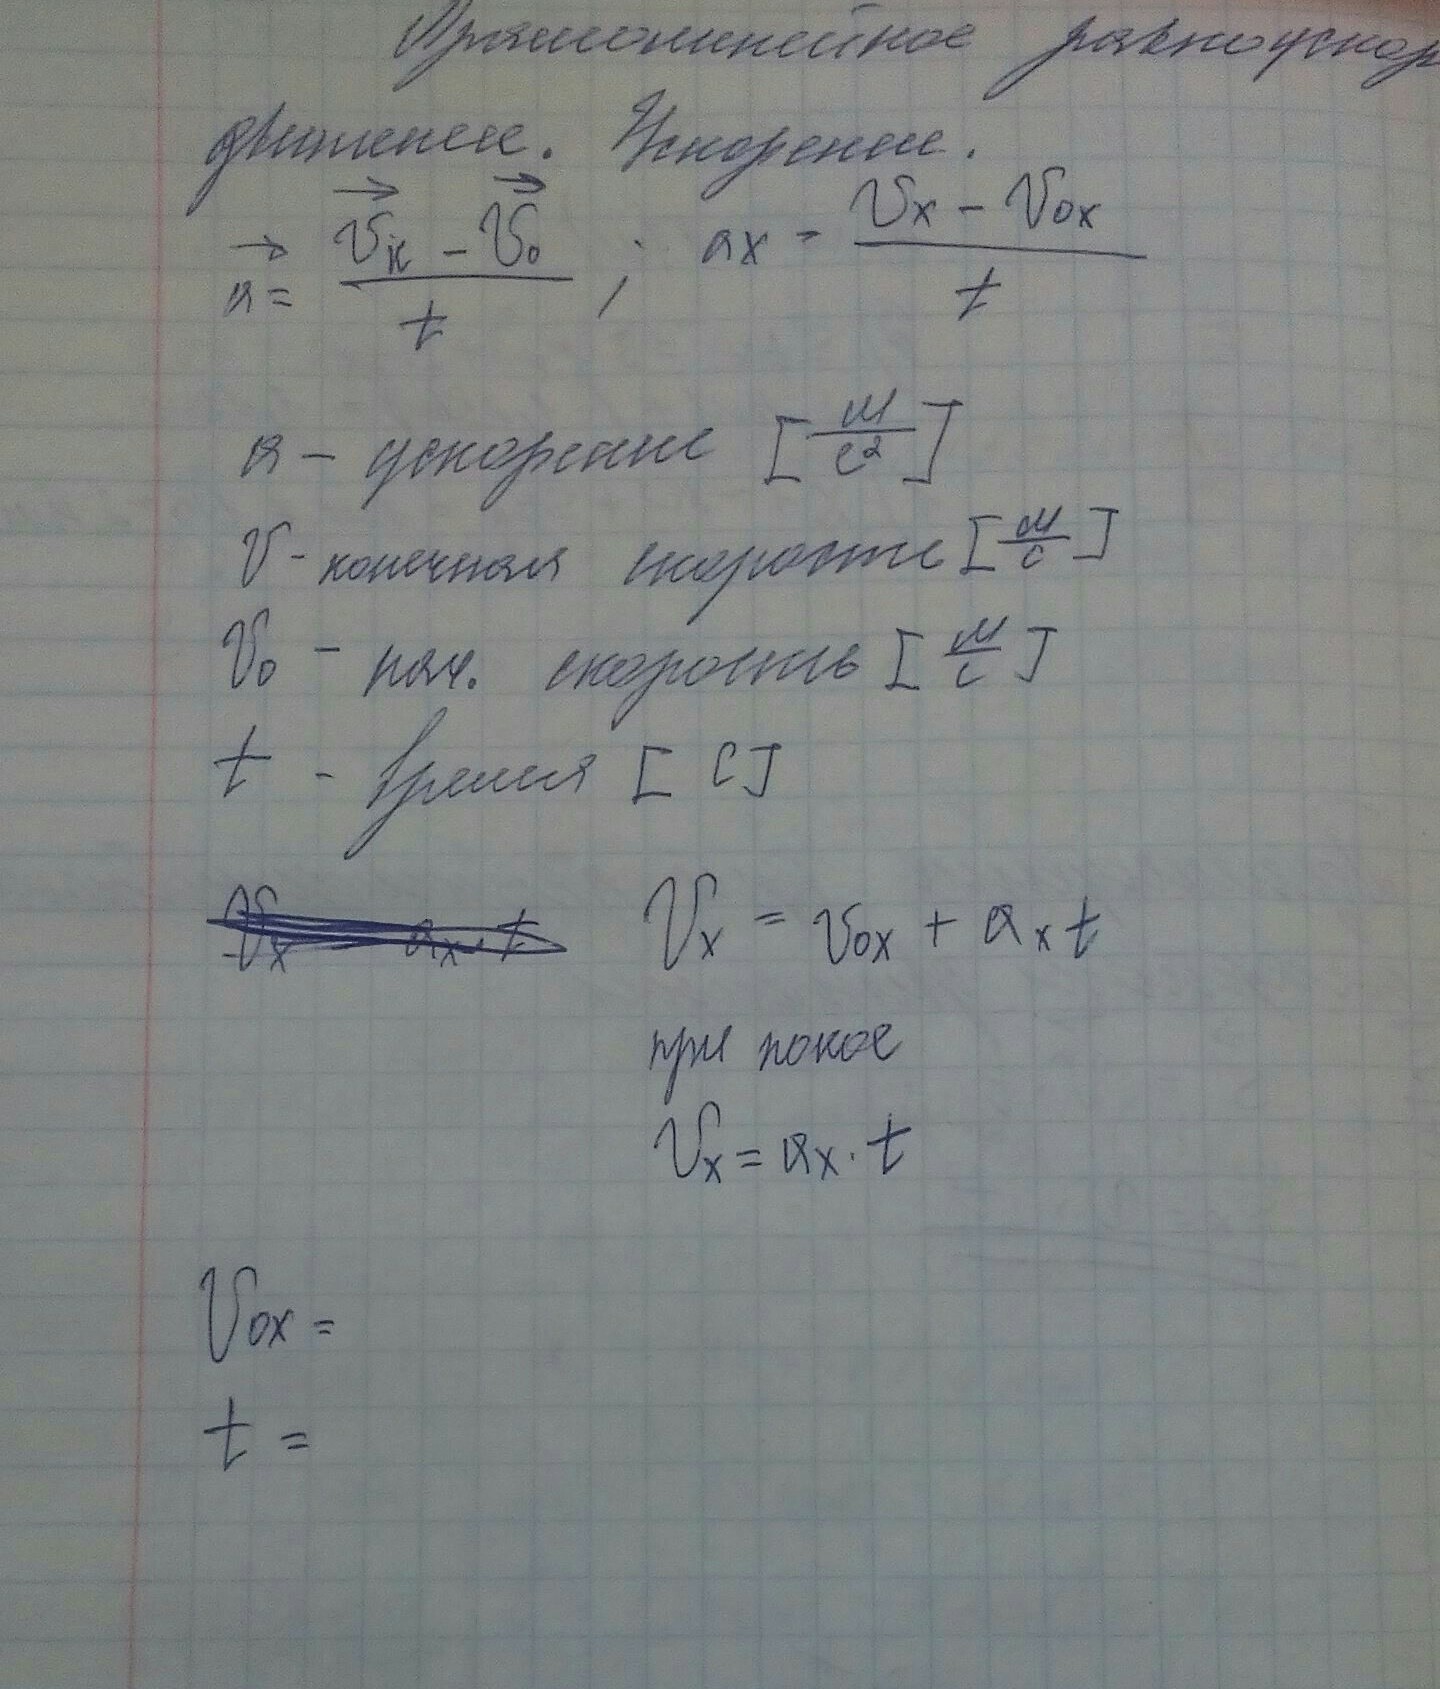 Прямолинейное равноускор
движение. Ускорение.
a⃗ = (v⃗к - v⃗₀) / t ; ax = (Vx - V₀x) / t
a - ускорение [м/с²]
V - конечная скорость [м/с]
V₀ - нач. скорость [м/с]
t - время [с]
Vx = ax · t Vx = V₀x + axt
при покое
Vx = ax · t
V₀x =
t =